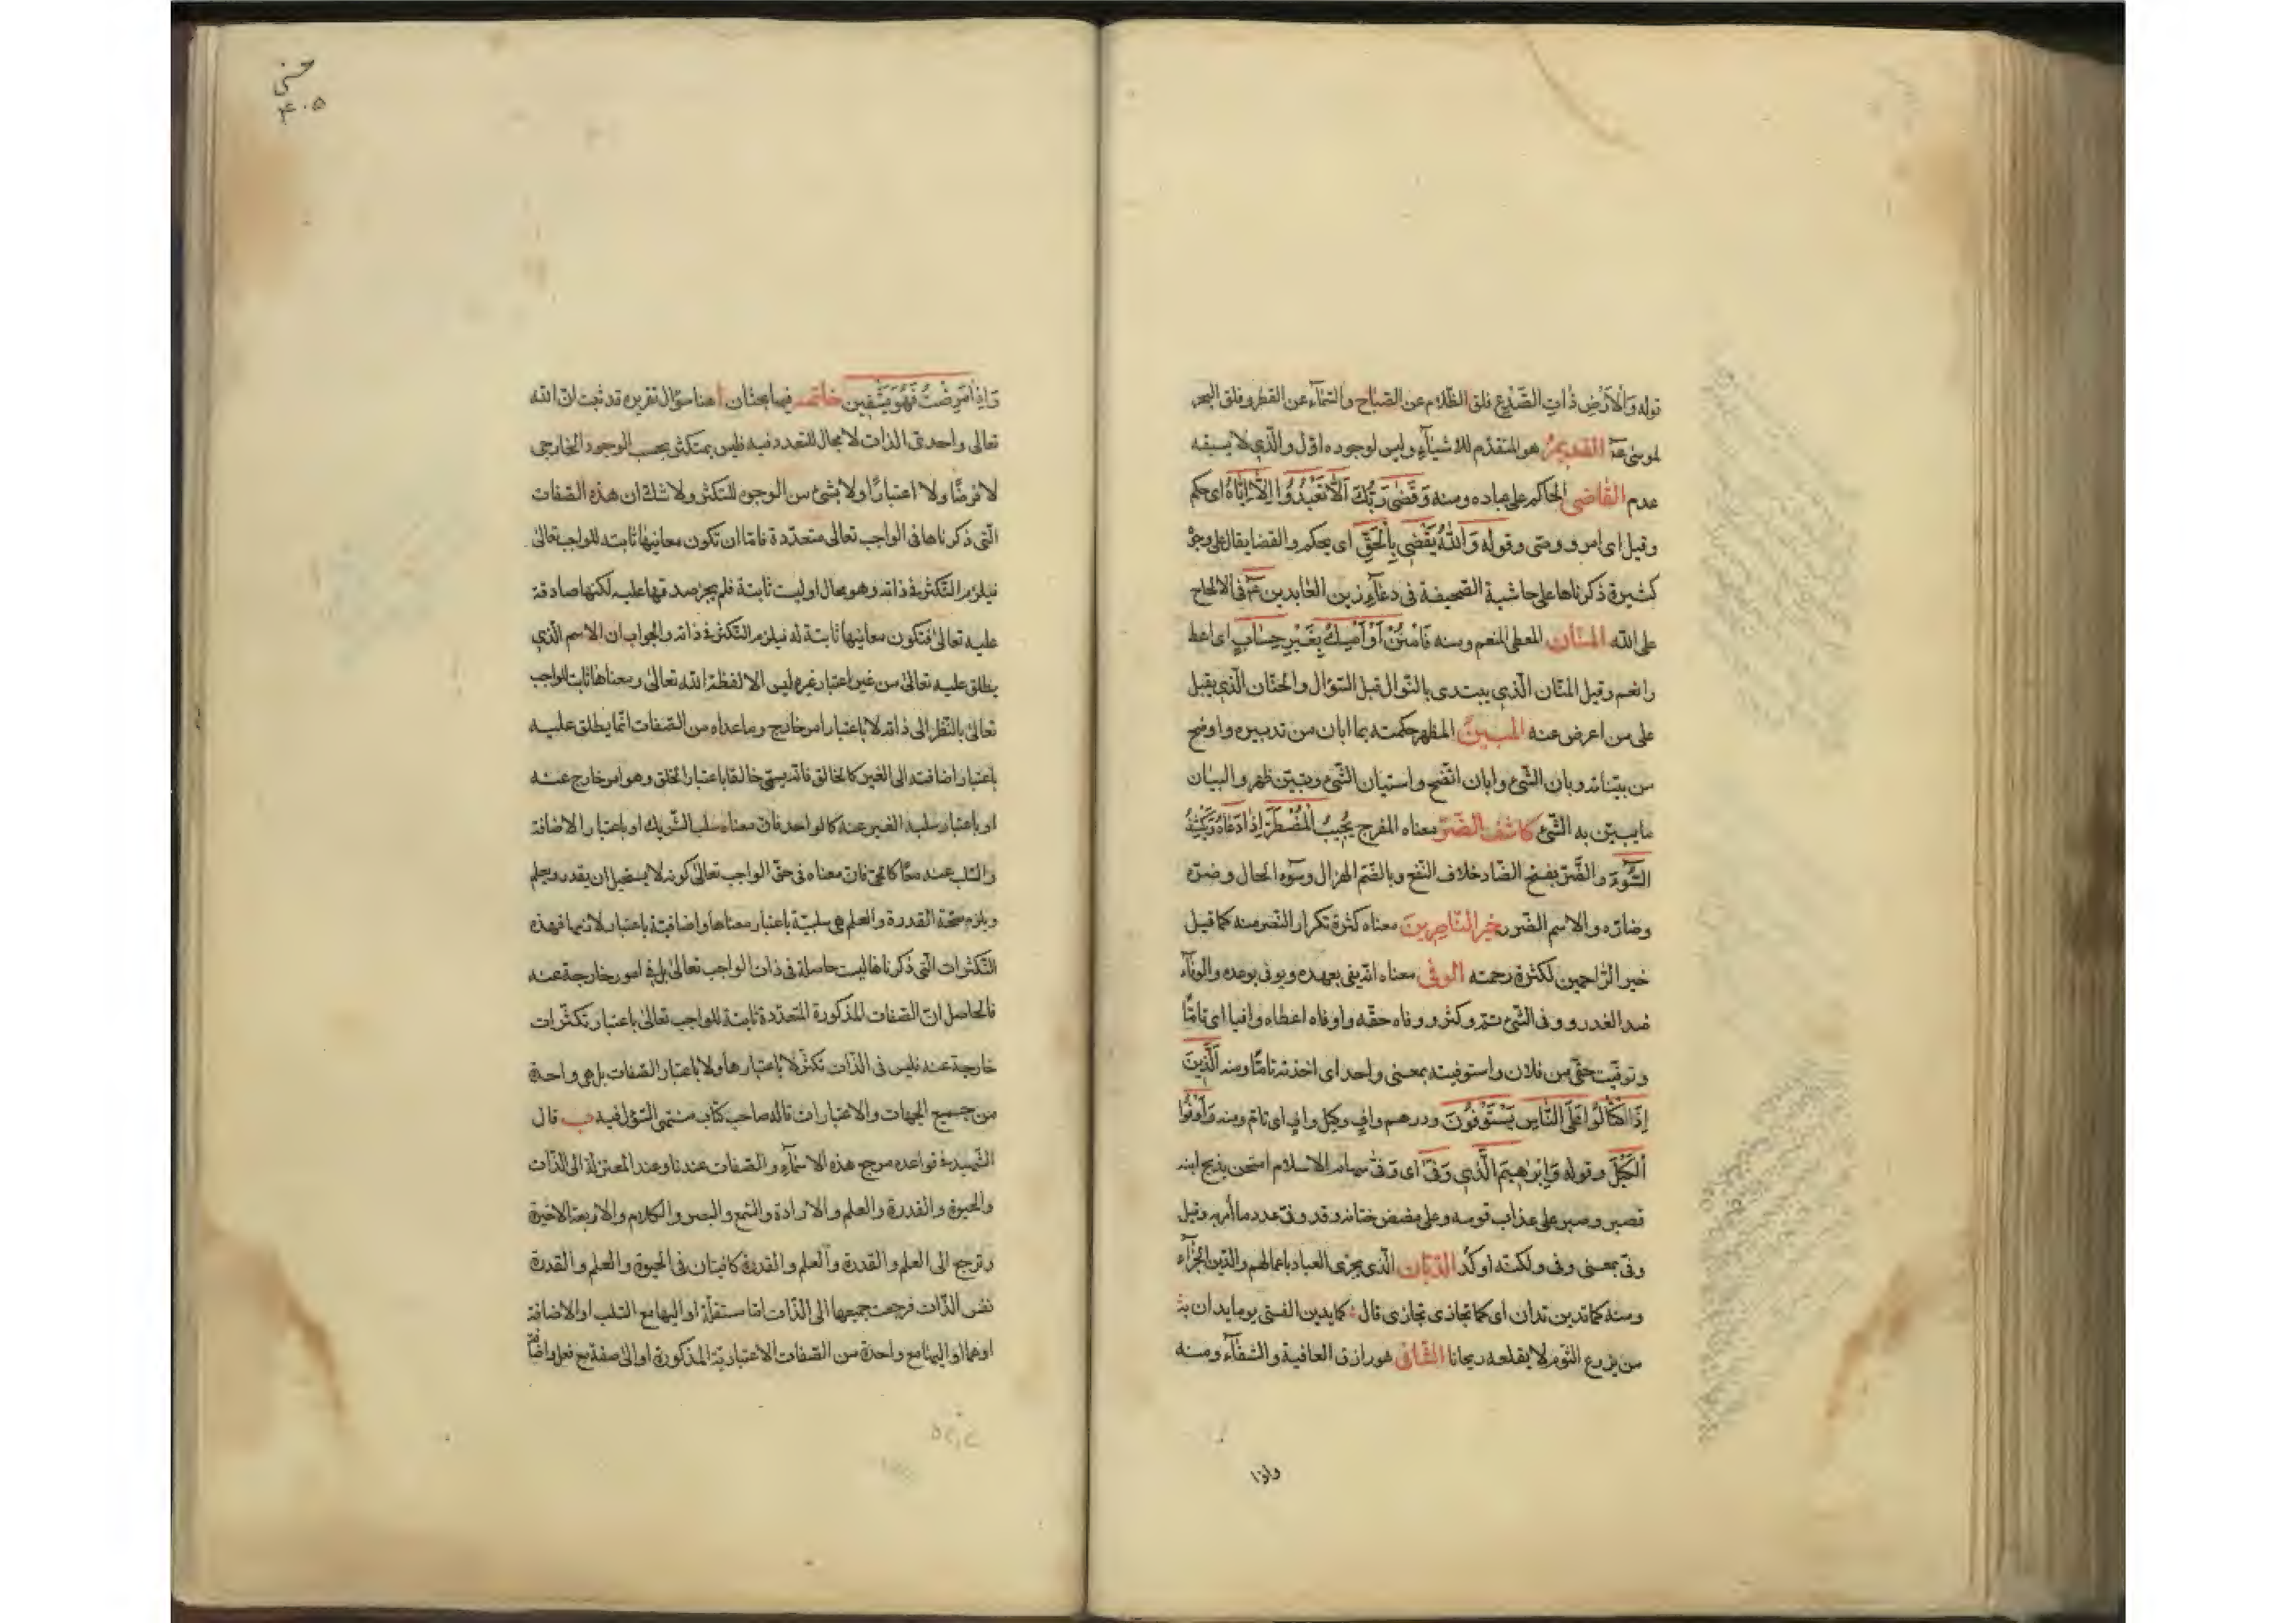 قوله وَالْاَرْضِ ذٰاتِ الصَّدْعِ فلق الظّلام عن الصّباح والسّمآء عن القطر وفلق البحر
لموسى عَ القديمُ هو المتقدّم للاشيآء وليس لوجوده اوّل والّذي لا يسبقه
عدم القٰاضى الحاكم على عباده ومنه وَقَضٰى رَبُّكَ اَلّٰا تَعْبُدُوا اِلّٰا اِيّٰاهُ اى حكم
وقيل اى امر ووصّى وقوله وَاللّٰهُ يَقْضِي بِالْحَقِّ اى يحكم والقضا يقال على وجوْ
كثيرة ذكرناها على حاشية الصّحيفة فى دعآء زين العٰابدين عَم فى الالحاح
على الله المنّان المعطى المنعم ومنه فَامْنُنْ اَوْ اَمْسِكْ بِغَيْرِ حِسٰابٍ اى اعط
وانعم وقيل المنّان الّذي يبتدى بالنّوال قبل السّؤال والحنّان الّذي يقبل
على من اعرض عنه المبينُ المظهر حكمته بما ابان من تدبيره واوضح
من بيّناته وبان الشّئ وابان اتّضح واستبان الشّئ وتبيّن ظهر والبيٰان
ما يبيّن به الشّئ كاشف الضّرّ معناه المفرج يُجِيبُ الْمُضْطَرَّ اِذٰا دَعٰاهُ وَيَكْشِفُ
السُّوٓءَ والضّرّ بفتح الضّاد خلاف النّفع وبالضّم الهزال وسوٓء الحال وضرّه
وضارّه والاسم الضّرر خير النّاصِرينَ معناه كثرة تكرار النّصر منه كما قيل
خير الرّاحمين لكثرة رحمته الوفىّ معناه انّه يفى بعهده ويوفى بوعده والوفآء
ضد الغدر ووفى الشّئ تمّ وكثر ووفاه حقّه واوفاه اعطاه وافيا اى تامّا
وتوفّيت حقّى من فلان واستوفيته بمعنى واحد اى اخذته تامّا ومنه الَّذِينَ
اِذَا اكْتٰالُوا عَلَى النّٰاسِ يَسْتَوْفُونَ ودرهم وافٍ وكيل وافٍ اى تامّ ومنه وَاَوْفُوا
الْكَيْلَ وقوله وَاِبْرٰهِيمَ الَّذِي وَفّٰى اى وفّى سهام الاسلام امتحن بذبح ابنه
فصبر وصبر على عذاب قومه وعلى مضض ختانه وقد وفّى عدد ما اُمِر به وقيل
وفّى بمعنى وفى ولكنّه اوكد الدّيّان الّذي يجزى العباد باعمالهم والدّين الجزآء
ومنه كما تدين تدان اى كما تجازى تجازى قال : كما يدين الفتى يوما يدان به
من يزرع الثّوم لا يقلعه ريحانا الشّافى هو رازق العافية والشّفآء ومنه
واذا
وَاِذٰا مَرِضْتُ فَهُوَ يَشْفِينِ خاتمه فيها بحثان ا هنا سؤال تقريره قد ثبت انّ الله
تعالى واحدىّ الذات لا مجال للتعدد فيه فليس بمتكثّر بحسب الوجود الخارجى
لا فرضًا ولا اعتبارًا ولا بشئ من الوجوه للتكثر ولا شكّ ان هذه الصّفات
الّتى ذكرناها فى الواجب تعالى متعدّدة فامّا ان تكون معانيها ثابته للواجب تعالىٰ
فيلزم التّكثر فى ذاته وهو محال او ليست ثابتة فلم يجز صدقها عليه لكنّها صادقة
عليه تعالىٰ فتكون معانيها ثابتة له فيلزم التكثر فى ذاته والجواب ان الاسم الّذي
يطلق عليه تعالىٰ من غير اعتبار غيره ليس الا لفظة الله تعالىٰ ومعناها ثابت للواجب
تعالىٰ بالنّظر الى ذاته لا باعتبار امر خارج وما عداه من الصّفات انّما يطلق عليه
باعتبار اضافته الى الغير كالخالق فانّه يسمّى خالقا باعتبار الخلق وهو امر خارج عنه
او باعتبار سلب الغير عنه كالواحد فانّ معناه سلب الشّريك او باعتبار الاضافة
والسّلب عنه معًا كالحىّ فانّ معناه فى حقّ الواجب تعالىٰ كونه لا يستحيل ان يقدر ويعلم
ويلزم صحّة القدرة والعلم فهى سلبيّة باعتبار معناها واضافيّة باعتبار لازمها فهذه
التّكثرات الّتى ذكرناها ليست حاصلة فى ذات الواجب تعالىٰ بل فى امور خارجة عنه
فالحاصل انّ الصّفات المذكورة المتعدّدة ثابتة للواجب تعالىٰ باعتبار تكثّرات
خارجة عنه فليس فى الذّات تكثّر لا باعتبارها ولا باعتبار الصّفات بل هى واحدة
من جميع الجهات والاعتبارات قاله صاحب كتاب منتهى السّؤل فيه ب قال
الشّهيد فى قواعده مرجع هذه الاسمآء والصّفات عندنا وعند المعتزلة الى الذّات
والحيوة والقدرة والعلم والارادة والسّمع والبصر والكلام والاربعة الاخيرة
ترجع الى العلم والقدرة والعلم والقدرة كافيتان فى الحيوة والعلم والقدرة
نفس الذّات فرجعت جميعها الى الذّات امّا مستقلّة او اليها مع السّلب او الاضافة
او هما او اليها مع واحدة من الصّفات الاعتباريّة المذكورة او الىٰ صفة مع فعل واضافة
۴۰۵